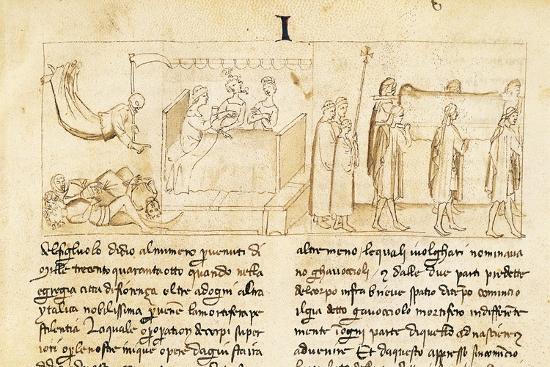 I
del figluolo didio al numero pervenuti di
mille trecento quaranta otto quando nella
egregia citta di fiorenza oltre ad ogni altra
ytalica nobilissima pvenne la mortifera pe
stilentia La quale op opation de corpi super
iori o p le nostre inique opere da giusta ira
altre meno lequali i volghari nominava
no ghavoccioli E dalle due parti predette
del corpo infra brieve spatio di tempo comincio
il gia detto gavocciolo mortifero indifferente
mente in ogni parte di quello ad nascere
advenire Et da questo appresso si comincio